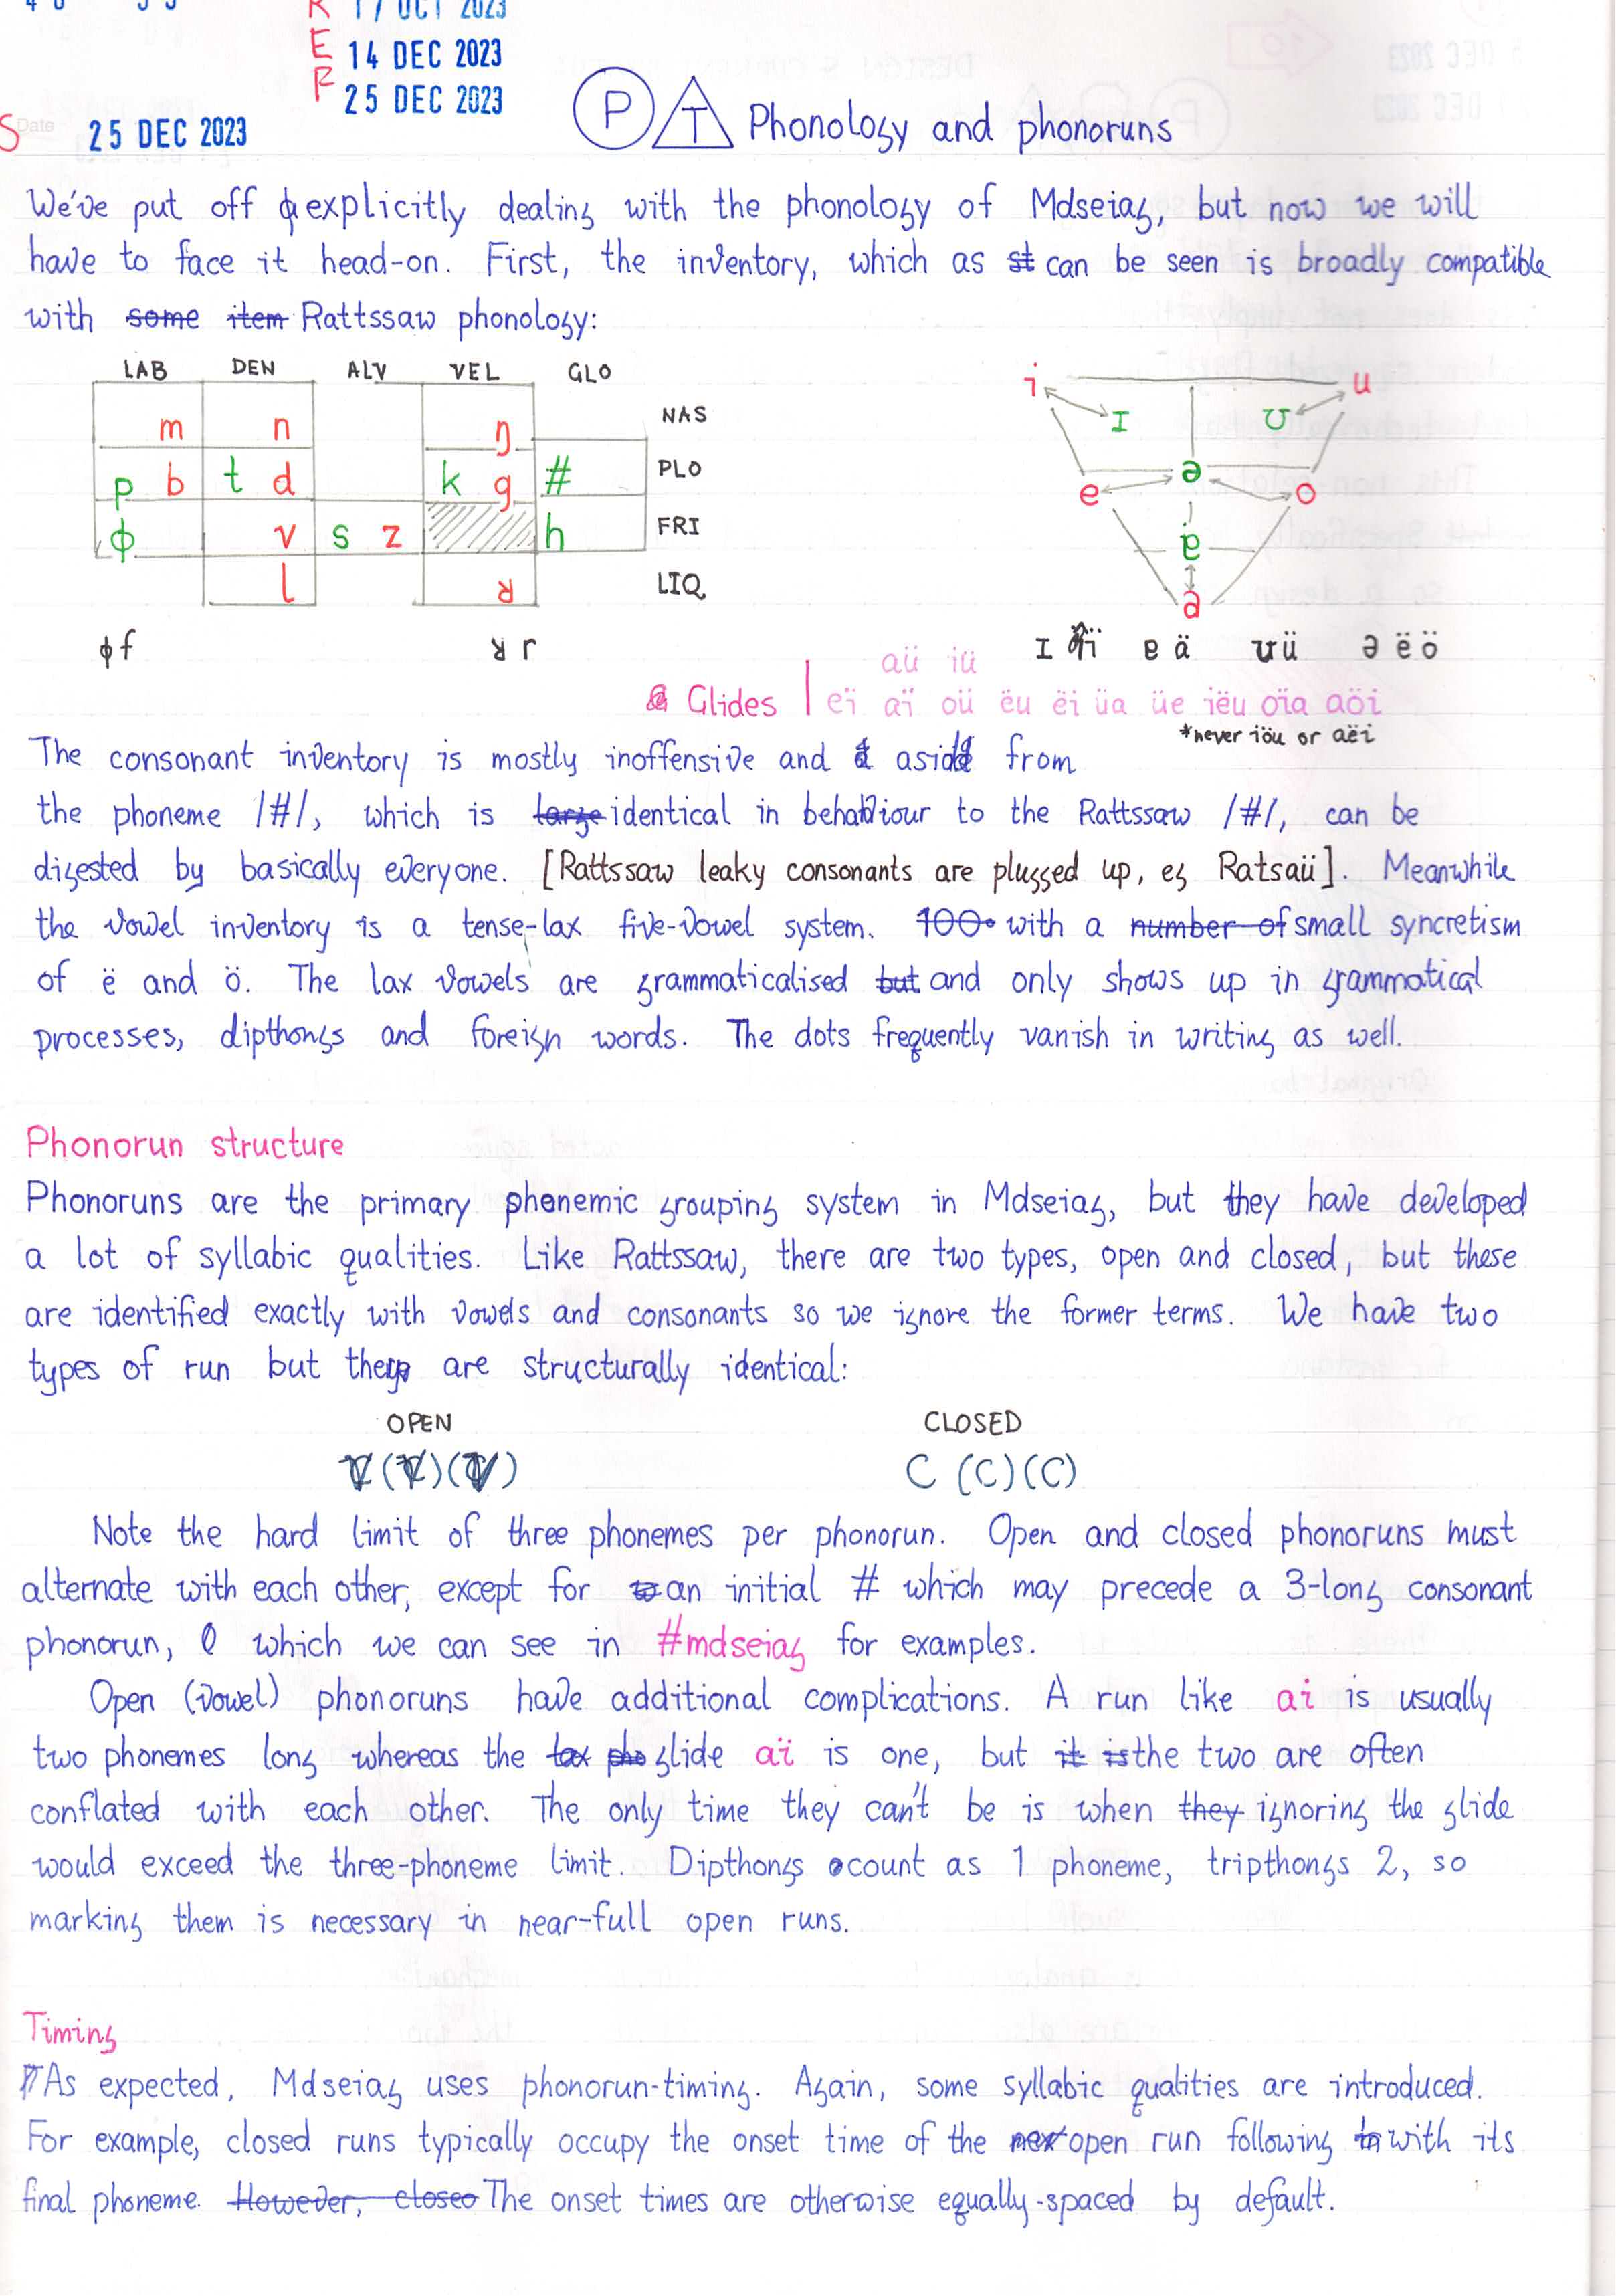 R 17 OCT 2023
E 14 DEC 2023
F 25 DEC 2023
S Date 25 DEC 2023
P T Phonology and phonoruns
We've put off explicitly dealing with the phonology of Mdseiag, but now we will
have to face it head-on. First, the inventory, which as st can be seen is broadly compatible
with some item Rattssaw phonology:
LAB DEN ALV VEL GLO
m n ŋ NAS
p b t d k g # PLO
ɸ v s z h FRI
l ʁ LIQ
i u
ɪ ʊ
ə
e o
ɐ
a
ɸ f ʁ r
ɪ ï ɐ ä ʊ ü ə ë ö
aü iü
Glides eï aï oü ëu ëi üa üe iëu oïa aöi
*never iöu or aëi
The consonant inventory is mostly inoffensive and aside from
the phoneme /#/, which is large identical in behaviour to the Rattssaw /#/, can be
digested by basically everyone. [Rattssaw leaky consonants are plugged up, eg Ratsaü]. Meanwhile
the vowel inventory is a tense-lax five-vowel system. 100. with a number of small syncretism
of ë and ö. The lax vowels are grammaticalised but and only shows up in grammatical
processes, dipthongs and foreign words. The dots frequently vanish in writing as well.
Phonorun structure
Phonoruns are the primary phonemic grouping system in Mdseiag, but they have developed
a lot of syllabic qualities. Like Rattssaw, there are two types, open and closed, but these
are identified exactly with vowels and consonants so we ignore the former terms. We have two
types of run but they are structurally identical:
OPEN CLOSED
V (V) (V) C (C) (C)
Note the hard limit of three phonemes per phonorun. Open and closed phonoruns must
alternate with each other, except for to an initial # which may precede a 3-long consonant
phonorun, which we can see in #mdseiag for examples.
Open (vowel) phonoruns have additional complications. A run like ai is usually
two phonemes long whereas the lax pho glide aï is one, but it is the two are often
conflated with each other. The only time they can't be is when they ignoring the glide
would exceed the three-phoneme limit. Dipthongs count as 1 phoneme, tripthongs 2, so
marking them is necessary in near-full open runs.
Timing
As expected, Mdseiag uses phonorun-timing. Again, some syllabic qualities are introduced.
For example, closed runs typically occupy the onset time of the nex open run following in with its
final phoneme. However, closeo The onset times are otherwise equally-spaced by default.